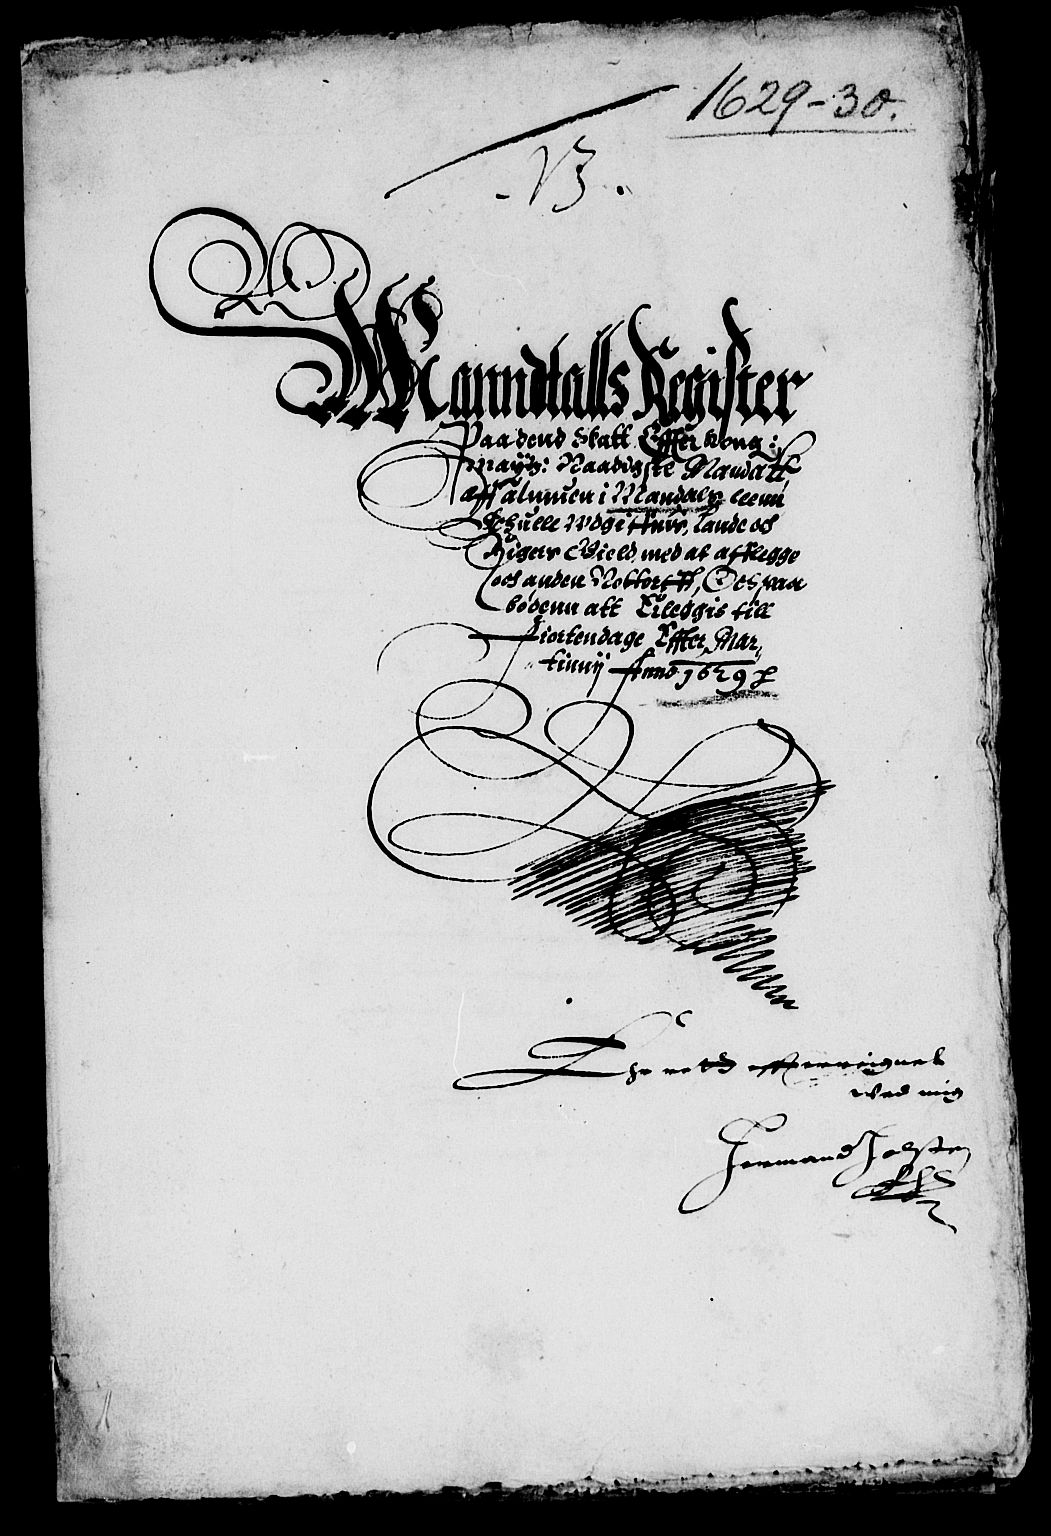 1629-30.
Manndtalls Register
Paa dend Skatt Effter kong:
may:tz: Naadigste Mandatt
aff almuen i Mandals leenn
Udgiffuis, Lande och
Rigers Gield, med at afflegge
och anden Nottorfft, Oc paa
bødenn att Erleggis till
Fiortendage Effter Mar,
tinnij Anno 1629
wed mig
Hermand Holsten